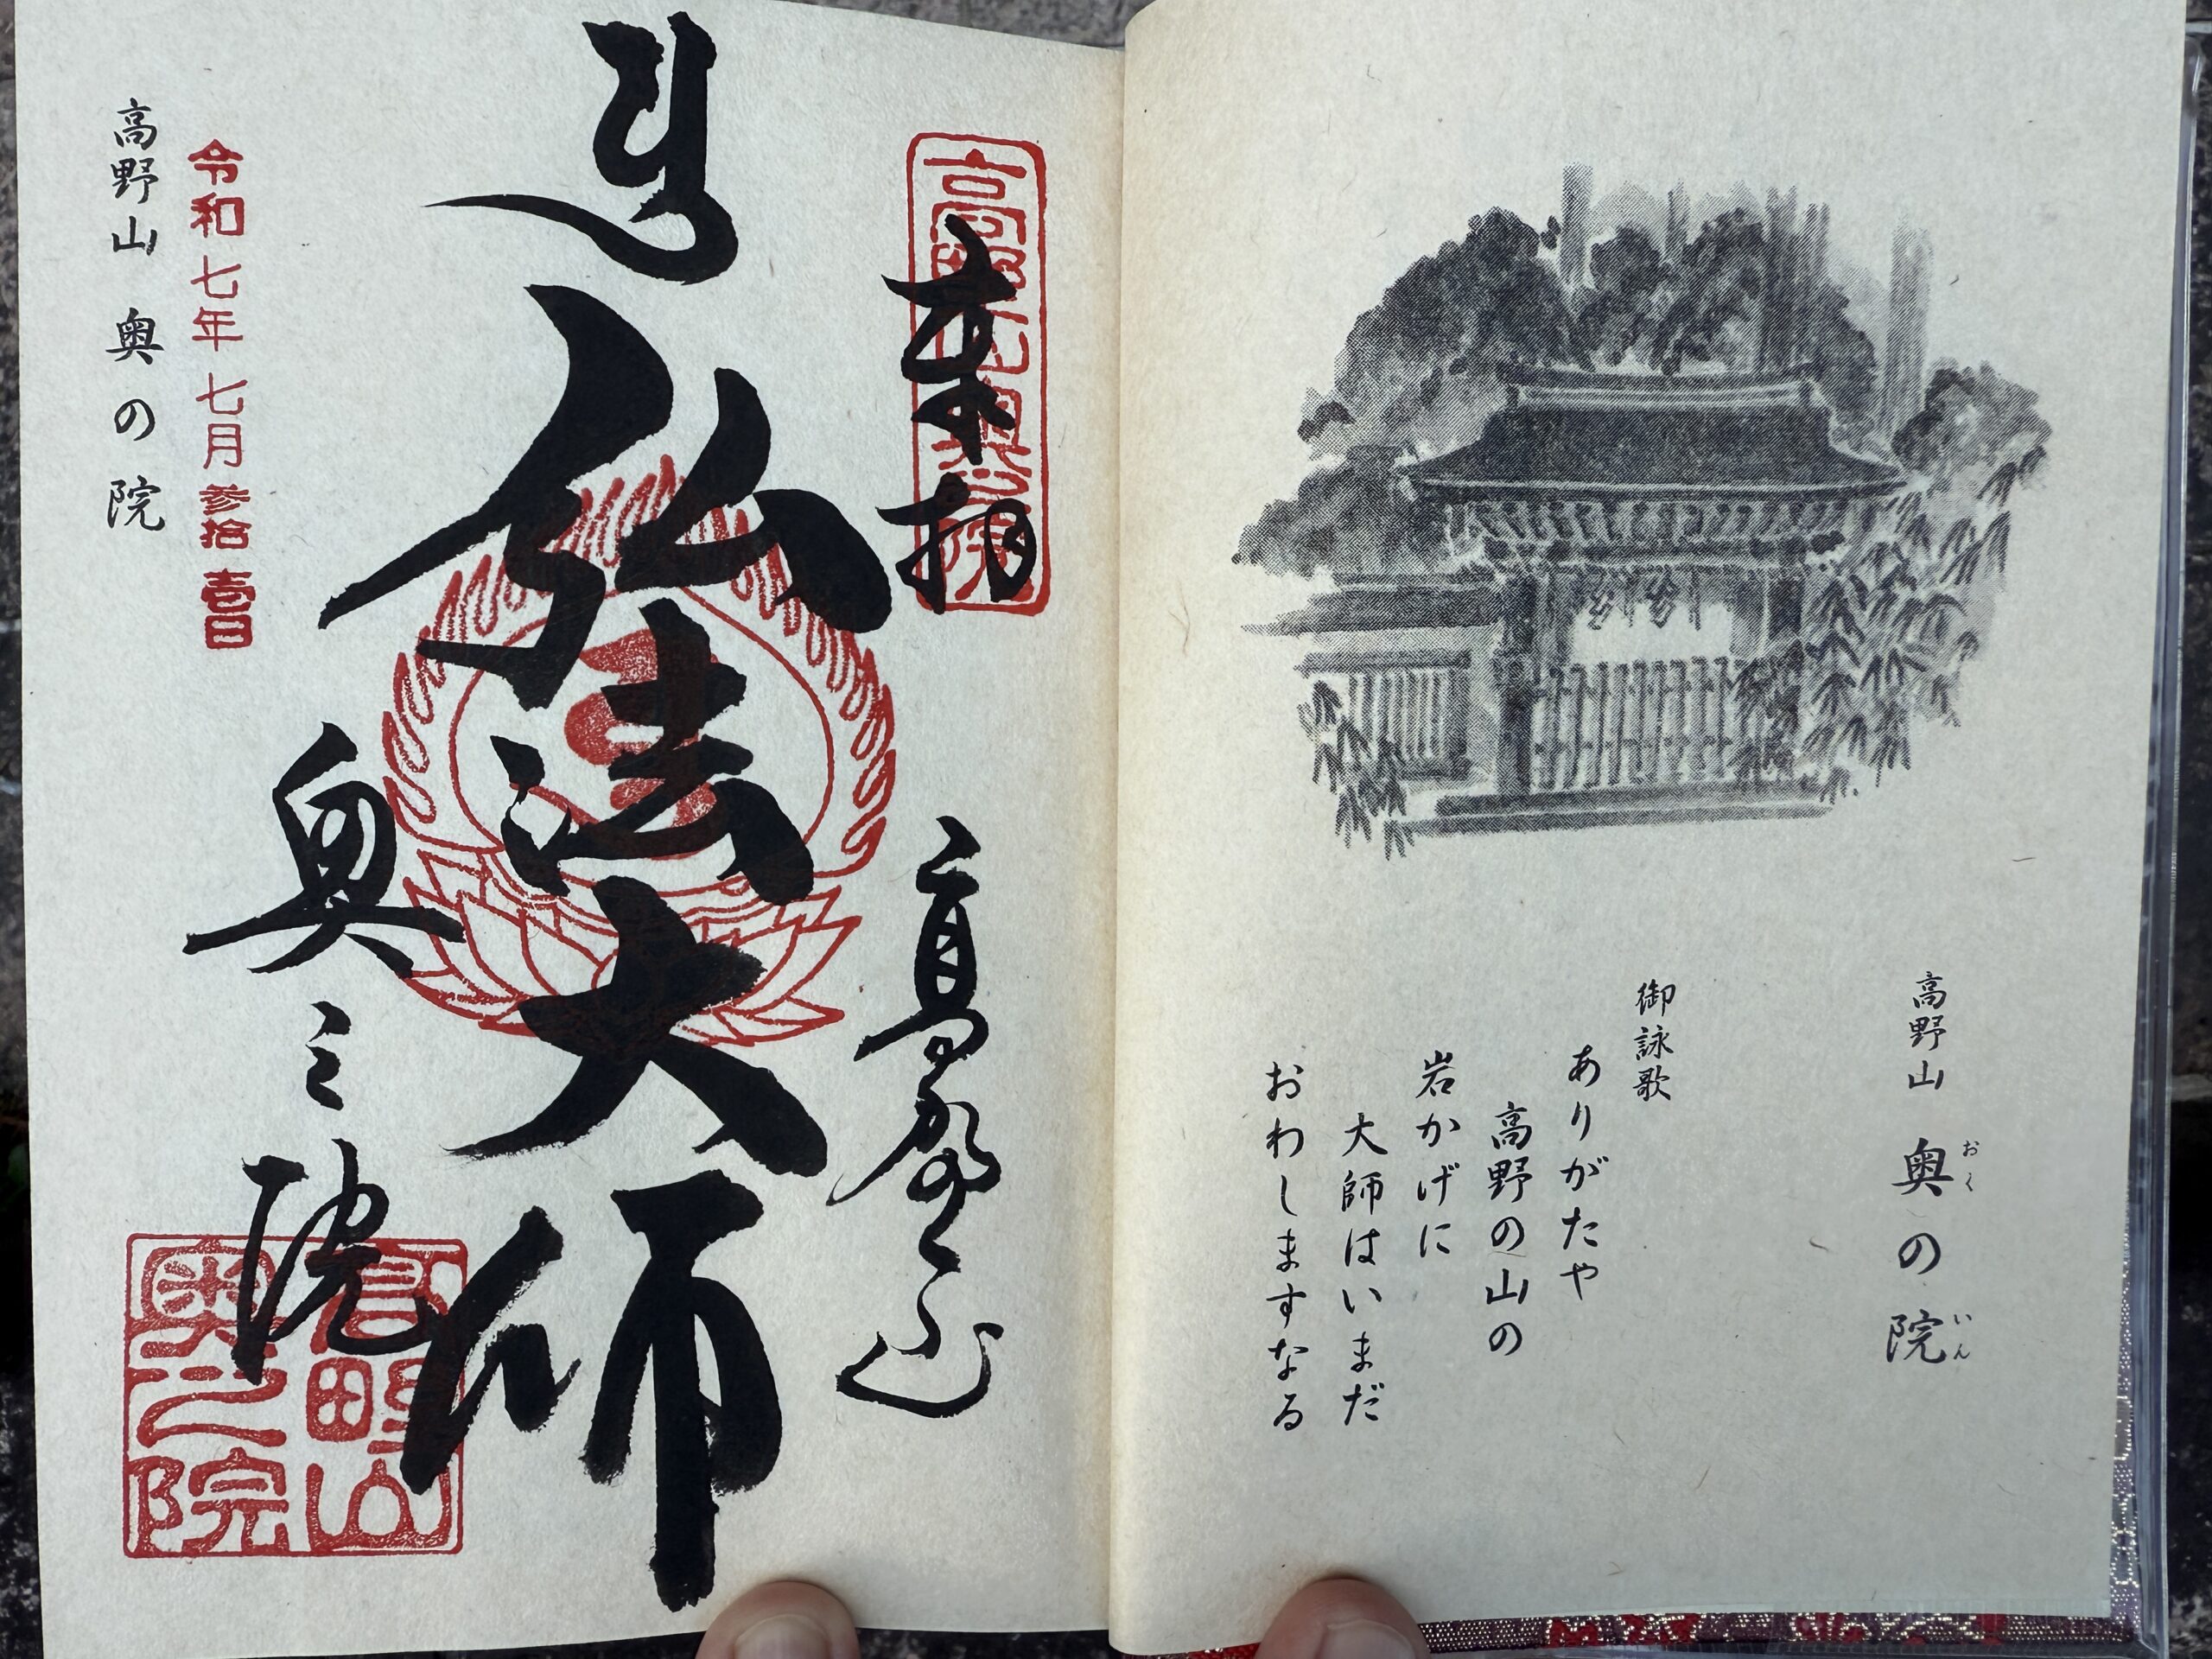 高野山 奥の院
おく
いん
御詠歌
ありがたや
高野の山の
岩かげに
大師はいまだ
おわしますなる
奉拝
高野山
弘法大師
奥之院
高野山
奥之院
令和七年七月参拾壹日
高野山 奥の院